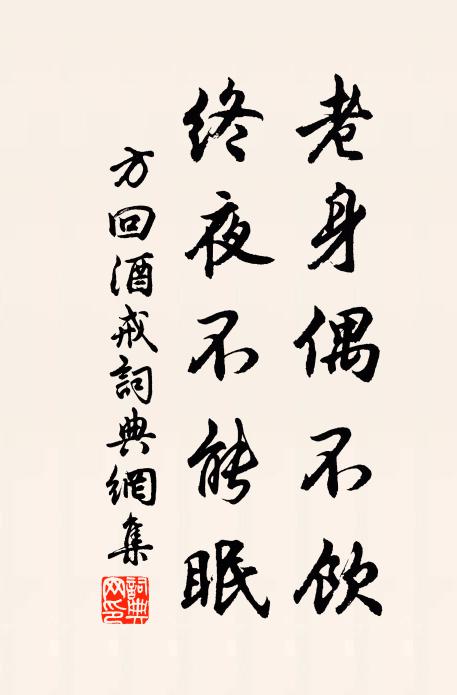 老身偶不飲
終夜不能眠
方回酒戒詞典網集
詞典網印